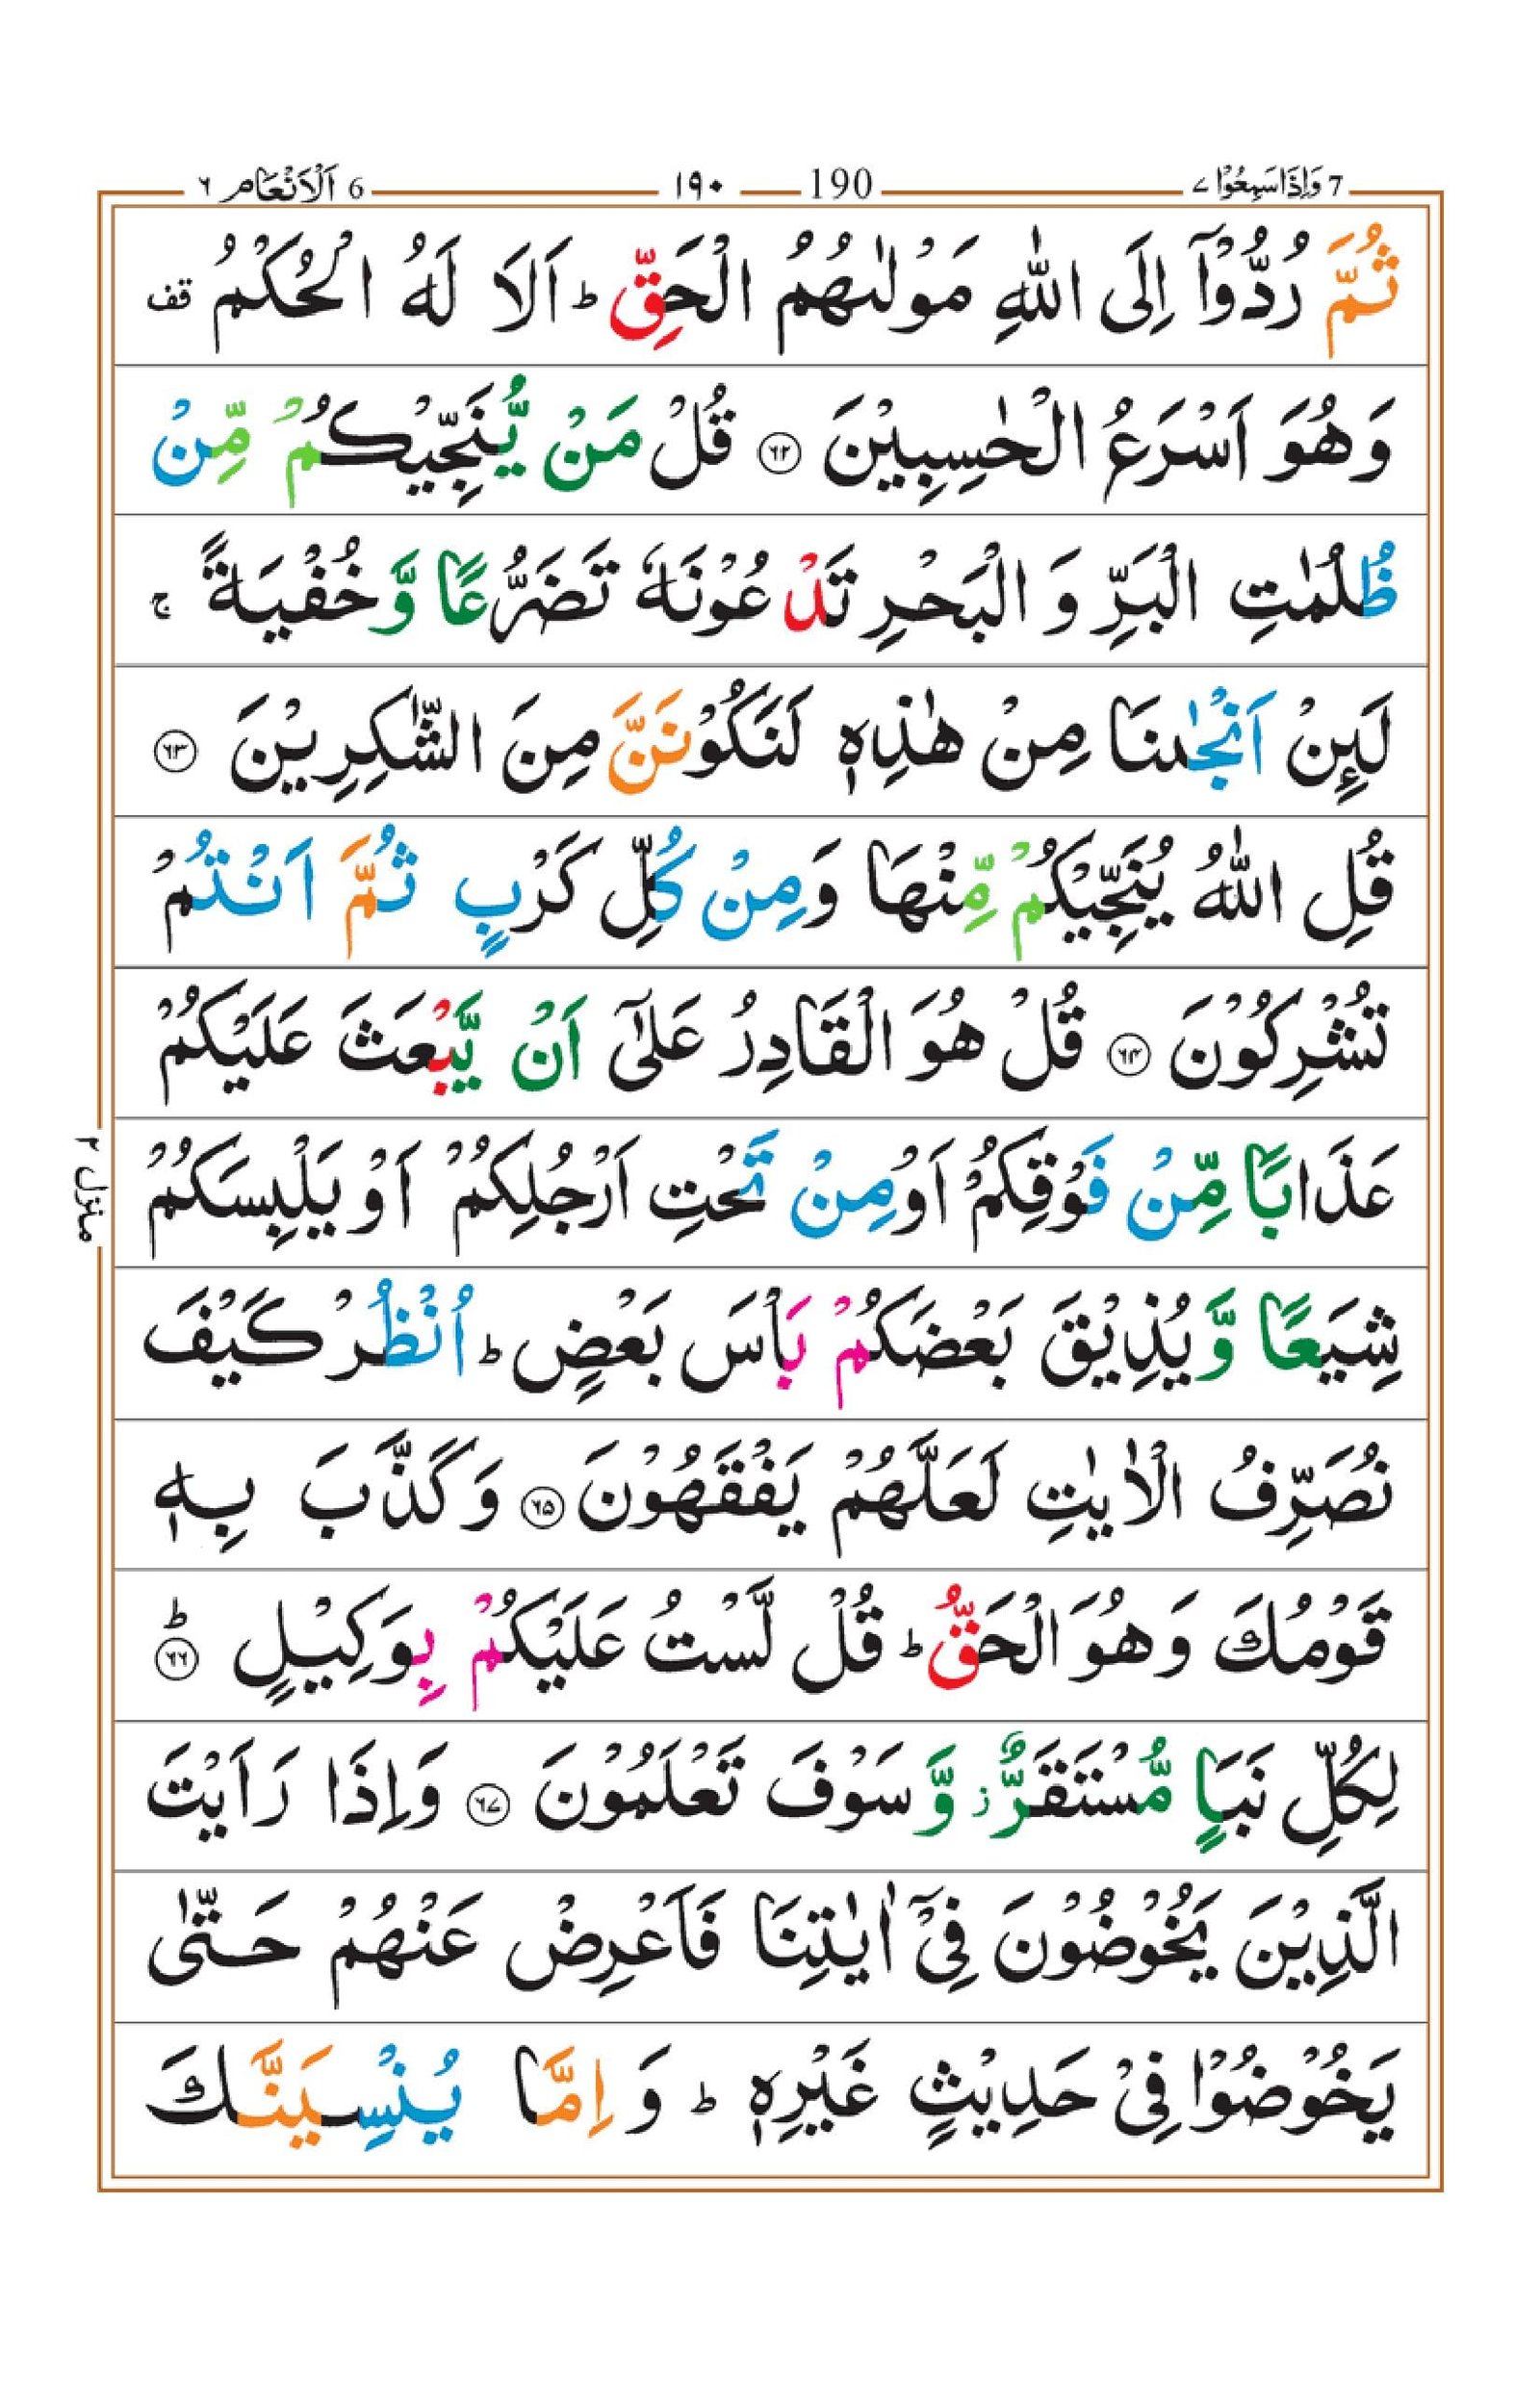 7 وَاِذَا سَمِعُوْا ۷ 190 ۱۹۰ 6 اَلْاَنْعَام ۶
ثُمَّ رُدُّوْۤا اِلَى اللّٰهِ مَوْلٰىهُمُ الْحَقِّ ؕ اَلَا لَهُ الْحُكْمُ قف
وَهُوَ اَسْرَعُ الْحٰسِبِيْنَ ﴿۶۲﴾ قُلْ مَنْ يُّنَجِّيْكُمْ مِّنْ
ظُلُمٰتِ الْبَرِّ وَ الْبَحْرِ تَدْعُوْنَهٗ تَضَرُّعًا وَّخُفْيَةً ۚ
لَىِٕنْ اَنْجٰىنَا مِنْ هٰذِهٖ لَنَكُوْنَنَّ مِنَ الشّٰكِرِيْنَ ﴿۶۳﴾
قُلِ اللّٰهُ يُنَجِّيْكُمْ مِّنْهَا وَمِنْ كُلِّ كَرْبٍ ثُمَّ اَنْتُمْ
تُشْرِكُوْنَ ﴿۶۴﴾ قُلْ هُوَ الْقَادِرُ عَلٰۤى اَنْ يَّبْعَثَ عَلَيْكُمْ
عَذَابًا مِّنْ فَوْقِكُمْ اَوْ مِنْ تَحْتِ اَرْجُلِكُمْ اَوْ يَلْبِسَكُمْ
شِيَعًا وَّيُذِيْقَ بَعْضَكُمْ بَاْسَ بَعْضٍ ؕ اُنْظُرْ كَيْفَ
نُصَرِّفُ الْاٰيٰتِ لَعَلَّهُمْ يَفْقَهُوْنَ ﴿۶۵﴾ وَكَذَّبَ بِهٖ
قَوْمُكَ وَهُوَ الْحَقُّ ؕ قُلْ لَّسْتُ عَلَيْكُمْ بِوَكِيْلٍ ؕ﴿۶۶﴾
لِكُلِّ نَبَاٍ مُّسْتَقَرٌّ ز وَّسَوْفَ تَعْلَمُوْنَ ﴿۶۷﴾ وَاِذَا رَاَيْتَ
الَّذِيْنَ يَخُوْضُوْنَ فِيْۤ اٰيٰتِنَا فَاَعْرِضْ عَنْهُمْ حَتّٰى
يَخُوْضُوْا فِيْ حَدِيْثٍ غَيْرِهٖ ؕ وَ اِمَّا يُنْسِيَنَّكَ
منزل ۲